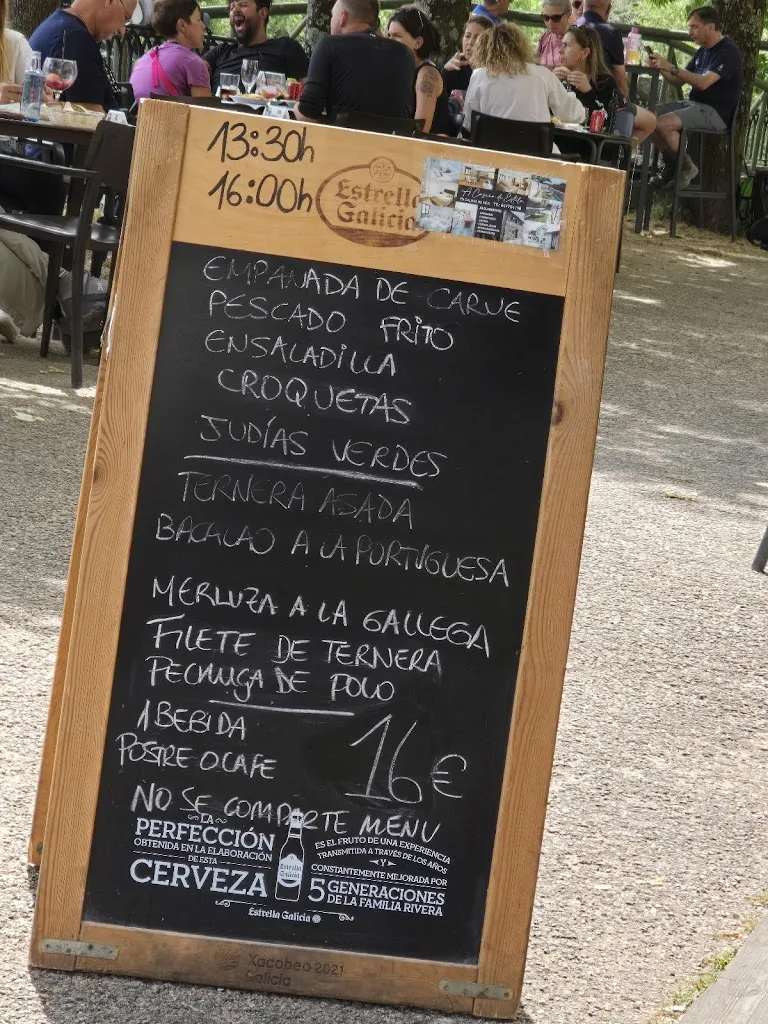 13:30h
16:00h
Estrella
Galicia
EMPANADA DE CARNE
PESCADO FRITO
ENSALADILLA
CROQUETAS
JUDÍAS VERDES
TERNERA ASADA
BACALAO A LA PORTUGUESA
MERLUZA A LA GALLEGA
FILETE DE TERNERA
PECHUGA DE POLO
1 BEBIDA
POSTRE O CAFE
16€
NO SE COMPARTE MENU
LA
PERFECCIÓN
OBTENIDA EN LA ELABORACIÓN
DE ESTA
CERVEZA
Estrella
Galicia
ES EL FRUTO DE UNA EXPERIENCIA
TRANSMITIDA A TRAVÉS DE LOS AÑOS
Y
CONSTANTEMENTE MEJORADA POR
5 GENERACIONES
DE LA FAMILIA RIVERA
Estrella Galicia
Xacobeo 2021
Galicia